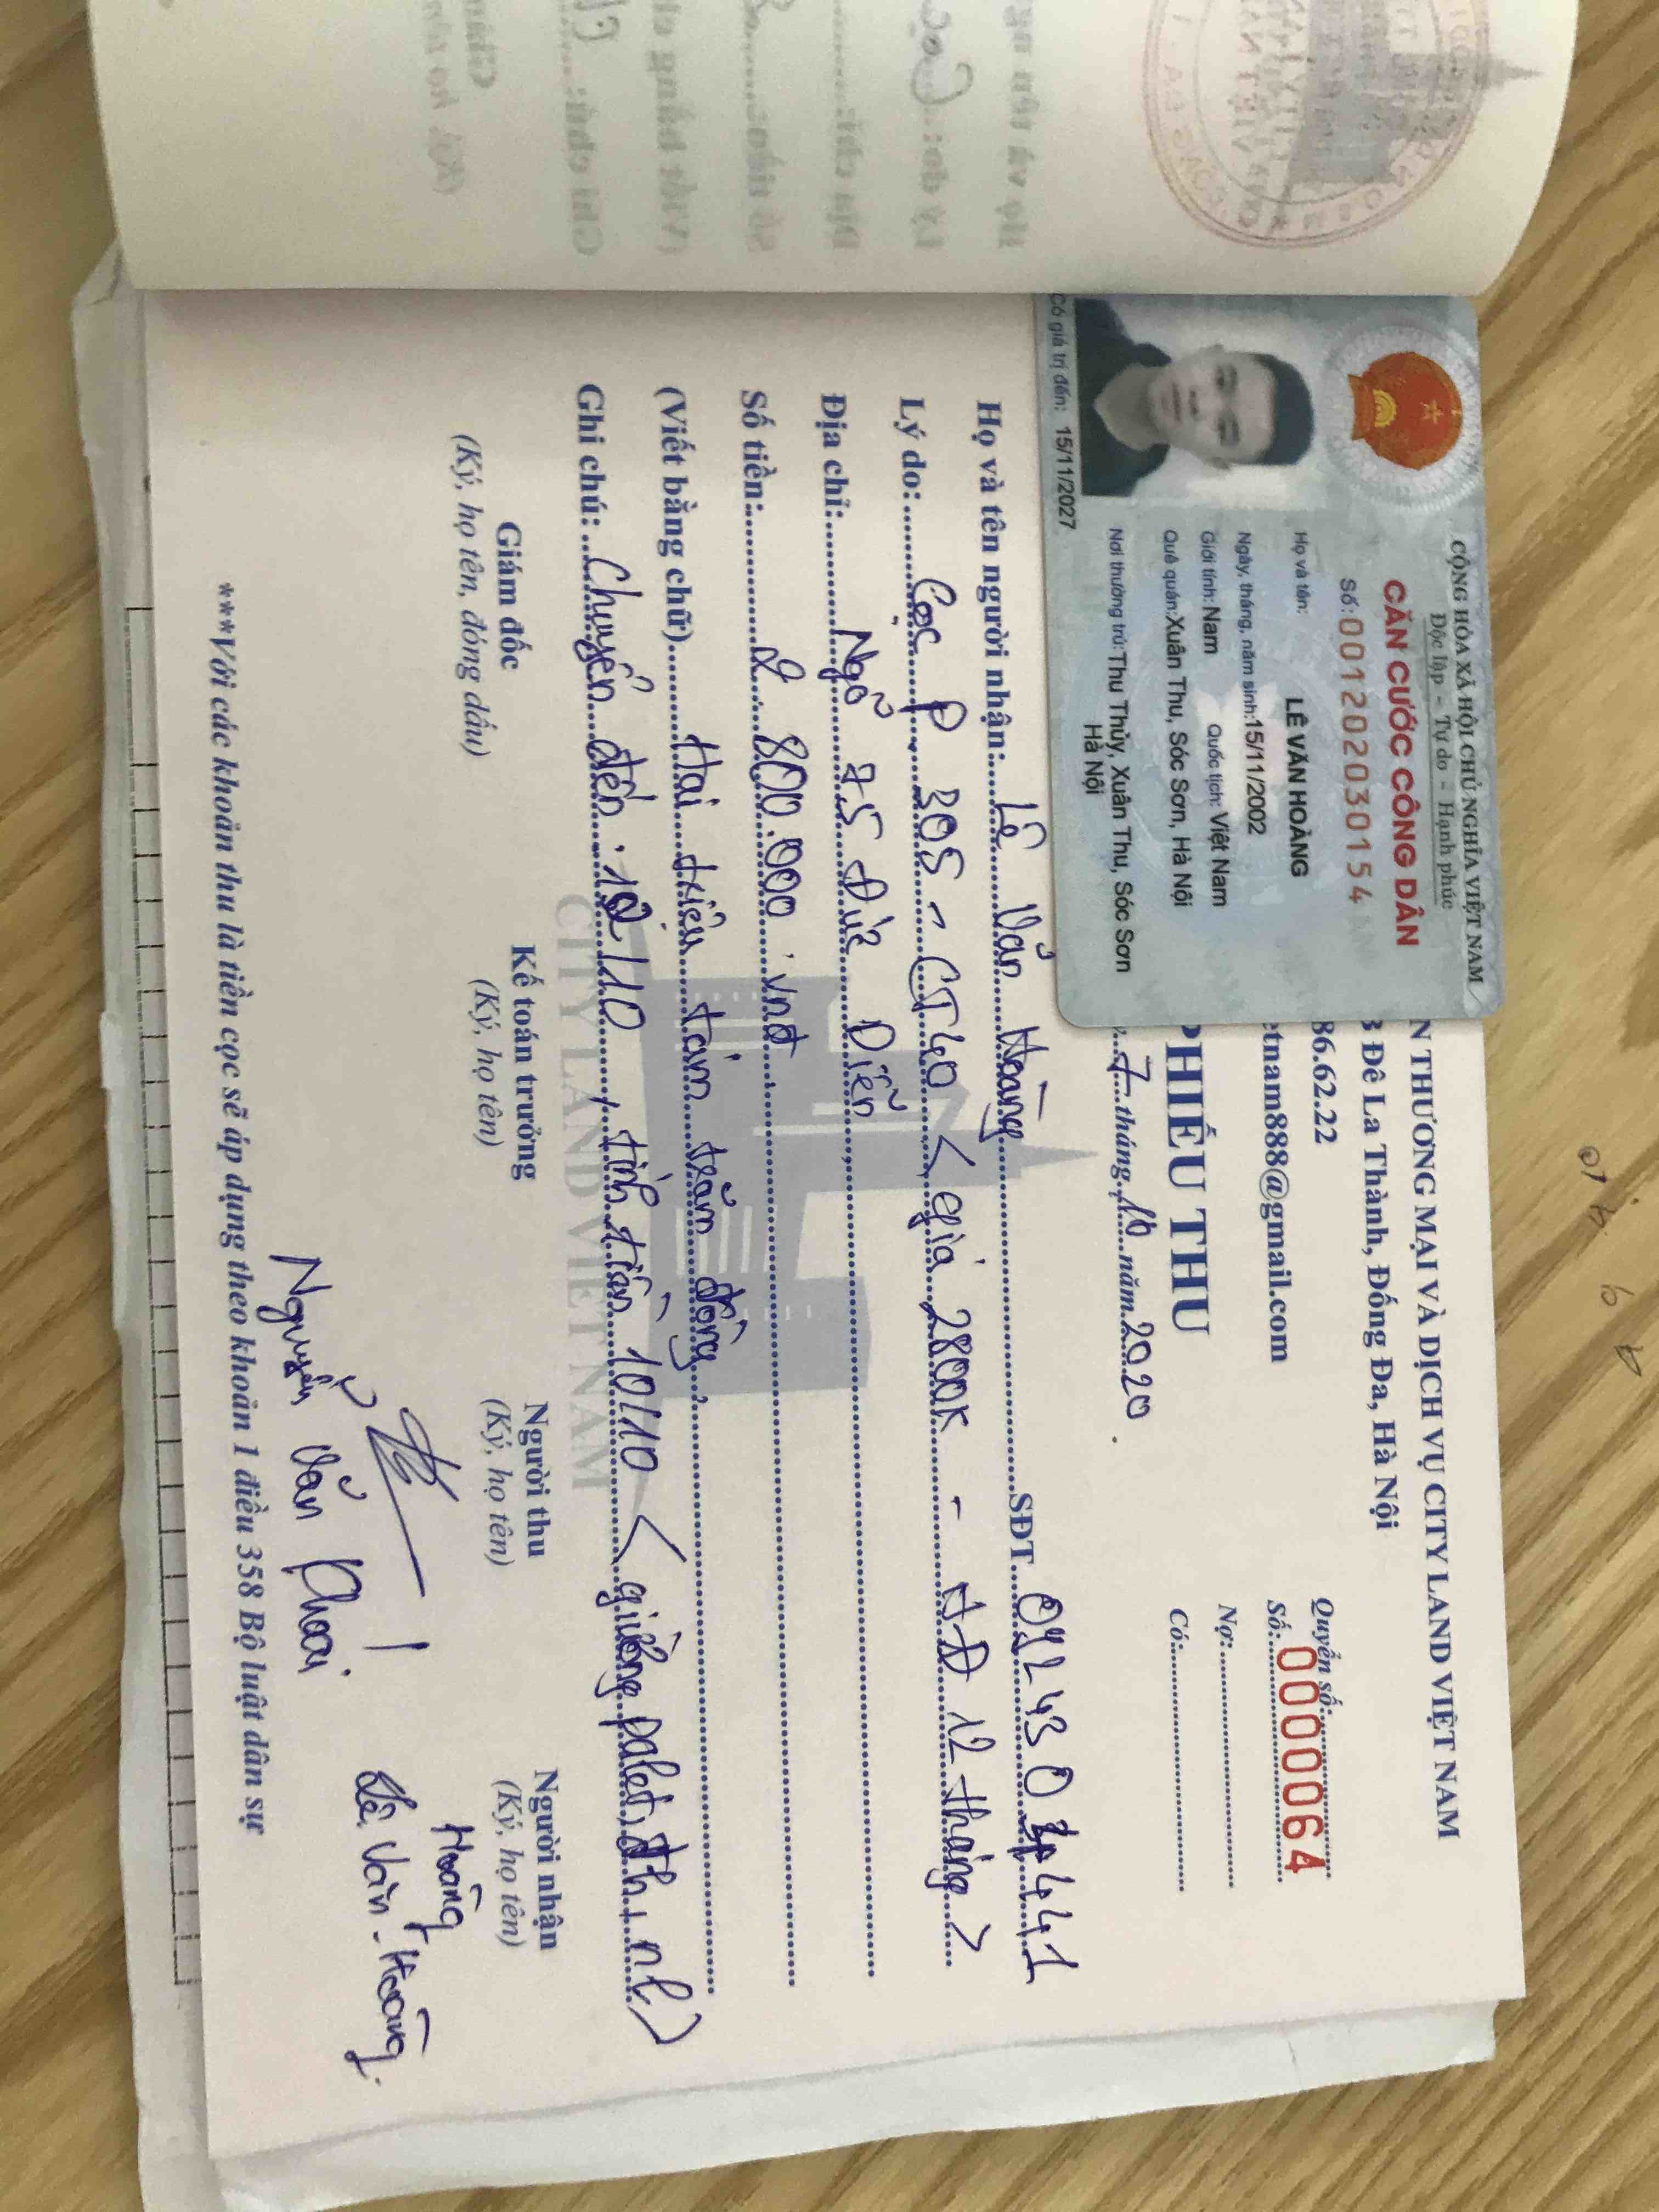 N THƯƠNG MẠI VÀ DỊCH VỤ CITY LAND VIỆT NAM
3 Đê La Thành, Đống Đa, Hà Nội
86.62.22
etnam888@gmail.com
Quyển số:
Số: 0000064
Nợ:
Có:
PHIẾU THU
7 tháng 10 năm 2020
CỘNG HÒA XÃ HỘI CHỦ NGHĨA VIỆT NAM
Độc lập - Tự do - Hạnh phúc
CĂN CƯỚC CÔNG DÂN
Số: 001202030154
Họ và tên: LÊ VĂN HOÀNG
Ngày, tháng, năm sinh: 15/11/2002
Giới tính: Nam Quốc tịch: Việt Nam
Quê quán: Xuân Thu, Sóc Sơn, Hà Nội
Nơi thường trú: Thu Thủy, Xuân Thu, Sóc Sơn
Hà Nội
Có giá trị đến: 15/11/2027
Họ và tên người nhận: Lê Văn Hoàng SĐT
Lý do: Cọc P 305 - CT40 < giá 2800K - HĐ 12 tháng >
Địa chỉ: Ngõ 75 Đức Diễn
Số tiền: 2.800.000 vnđ
(Viết bằng chữ) Hai triệu tám trăm đồng
Ghi chú: Chuyển đến 10/10, tính tiền 10/10 < giường palet, đh, nl >
Giám đốc
(Ký, họ tên, đóng dấu)
Kế toán trưởng
(Ký, họ tên)
Người thu
(Ký, họ tên)
Người nhận
(Ký, họ tên)
Nguyễn Văn
Hoàng
Lê Văn Hoàng
CITY LAND VIET NAM
***Với các khoản thu là tiền cọc sẽ áp dụng theo khoản 1 điều 358 Bộ luật dân sự